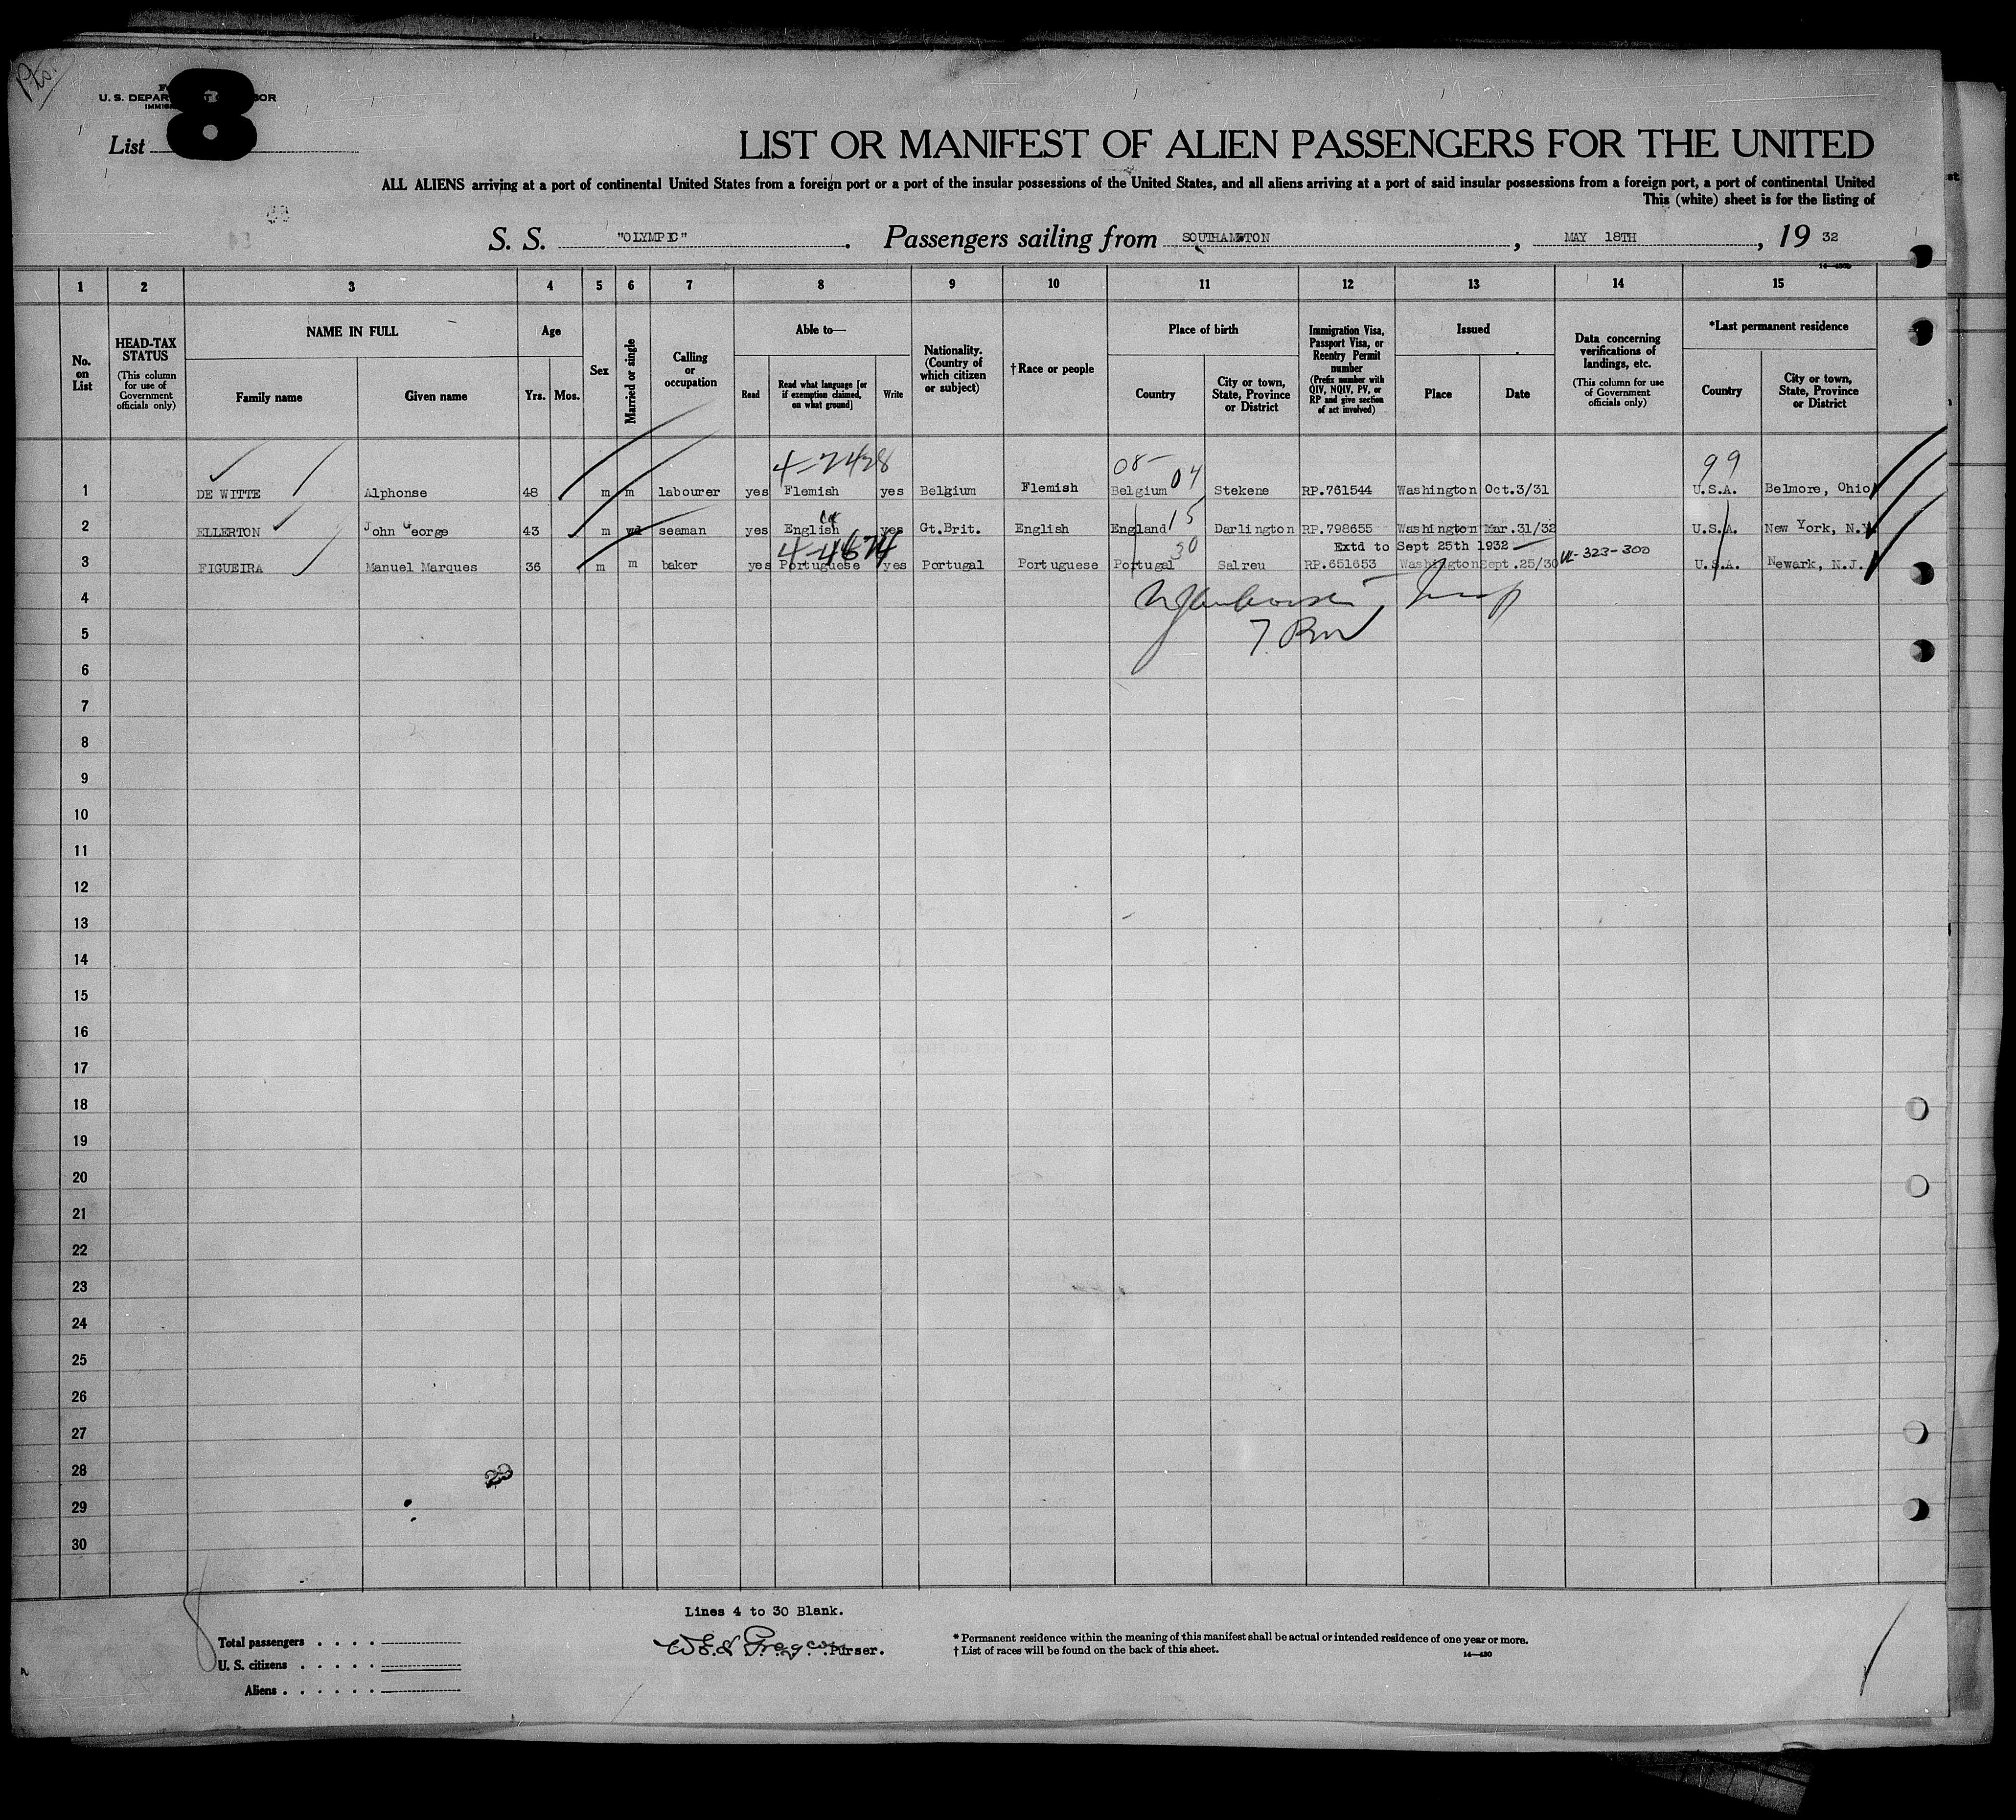 Pts.
U. S. DEPAR
OR
IMMIG
List 8
LIST OR MANIFEST OF ALIEN PASSENGERS FOR THE UNITED
ALL ALIENS arriving at a port of continental United States from a foreign port or a port of the insular possessions of the United States, and all aliens arriving at a port of said insular possessions from a foreign port, a port of continental United
This (white) sheet is for the listing of
S. S. "OLYMPIC". Passengers sailing from SOUTHAMPTON, MAY 18TH, 19 32
1 2 3 4 5 6 7 8 9 10 11 12 13 14 15
No. on List
HEAD-TAX STATUS (This column for use of Government officials only)
NAME IN FULL
Family name Given name
Age
Yrs. Mos.
Sex
Married or single
Calling or occupation
Able to—
Read Read what language [or if exemption claimed, on what ground] Write
Nationality. (Country of which citizen or subject)
†Race or people
Place of birth
Country City or town, State, Province or District
Immigration Visa, Passport Visa, or Reentry Permit number (Prefix number with QIV, NQIV, PV, or RP and give section of act involved)
Issued
Place Date
Data concerning verifications of landings, etc. (This column for use of Government officials only)
*Last permanent residence
Country City or town, State, Province or District
4-2428 05- 99
1 DE WITTE Alphonse 48 m m labourer yes Flemish yes Belgium Flemish Belgium 04 Stekene RP.761544 Washington Oct.3/31 U.S.A. Belmore, Ohio
2 ELLERTON John George 43 m wd seaman yes English yes Gt.Brit. English England 15 Darlington RP.798655 Washington Mar.31/32 U.S.A. New York, N.Y.
4-4674 30 Extd to Sept 25th 1932
3 FIGUEIRA Manuel Marques 36 m m baker yes Portuguese yes Portugal Portuguese Portugal Salreu RP.651653 Washington Sept.25/30 -323-300 U.S.A. Newark, N.J.
4
5
6
7
8
9
10
11
12
13
14
15
16
17
18
19
20
21
22
23
24
25
26
27
28
29
30
Lines 4 to 30 Blank.
Total passengers . . . .
U. S. citizens . . . . .
Aliens . . . . . .
Purser.
* Permanent residence within the meaning of this manifest shall be actual or intended residence of one year or more.
† List of races will be found on the back of this sheet.
14—430